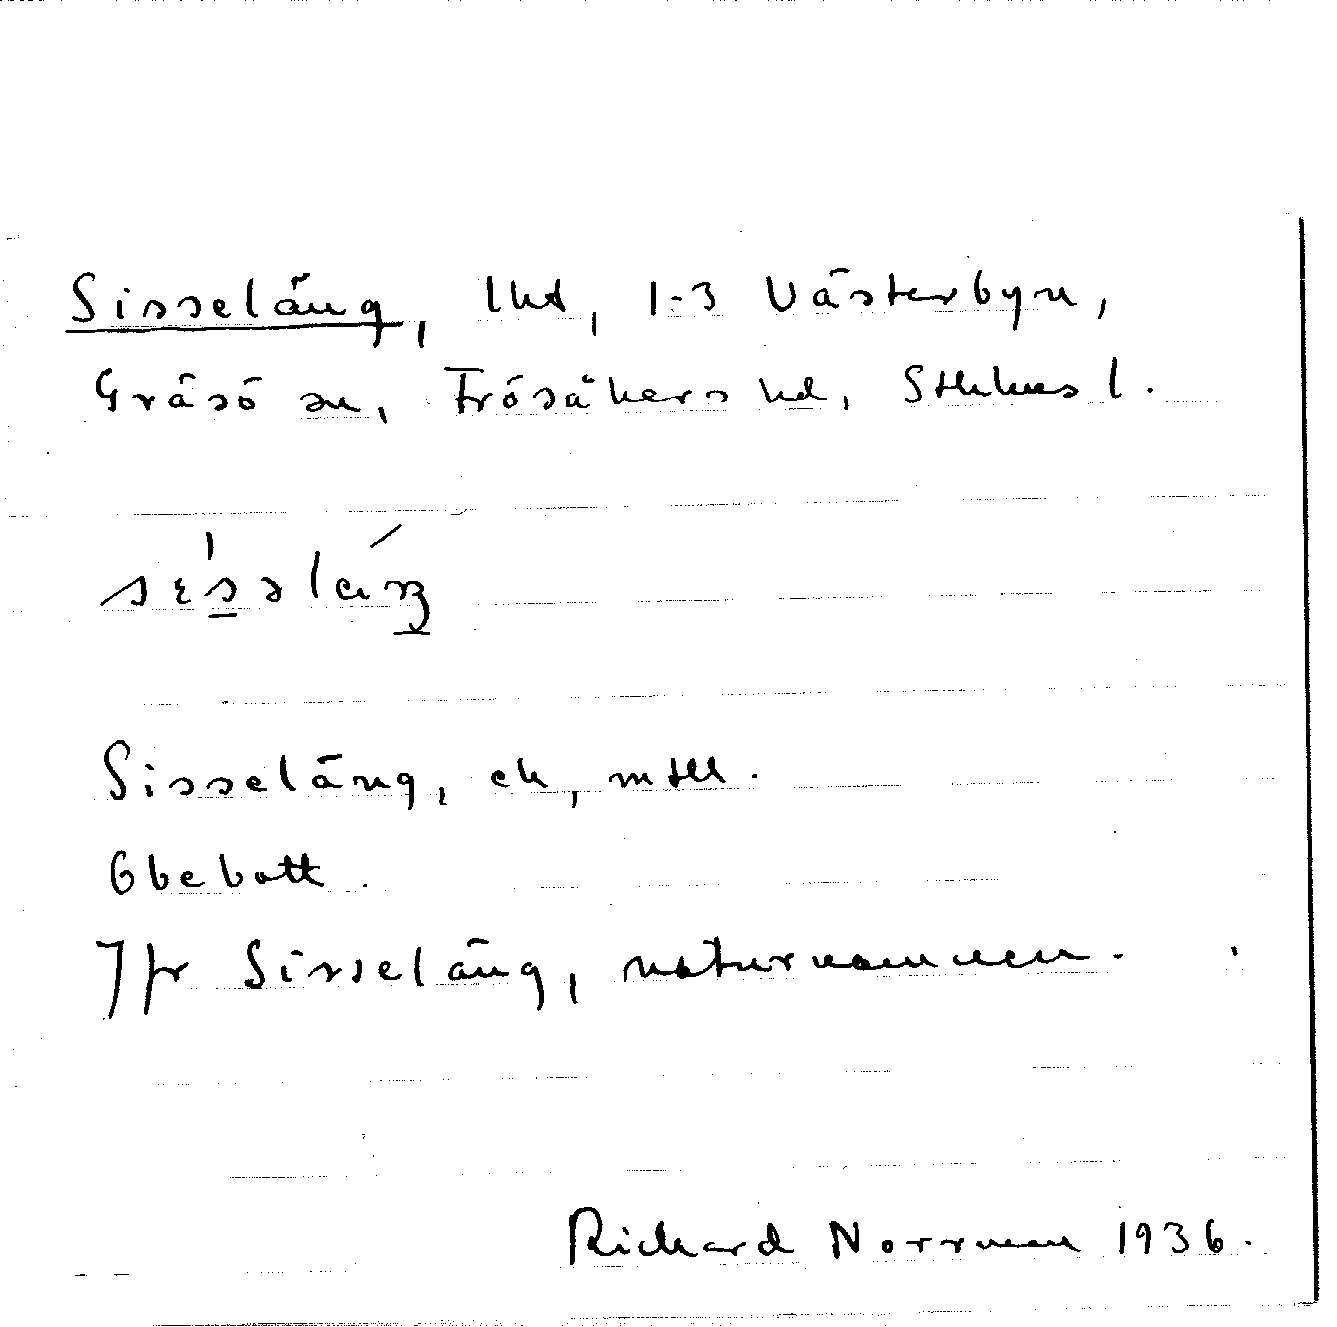 Sisseläng, lht, 1-3 Västerbyn,
Gräsö sn, Frösåkers hd, Sthlms l.
Sisseläng, ek, mtll.
Obebott.
Jfr Sisseläng, naturnamnen.
Richard Norrman 1936.